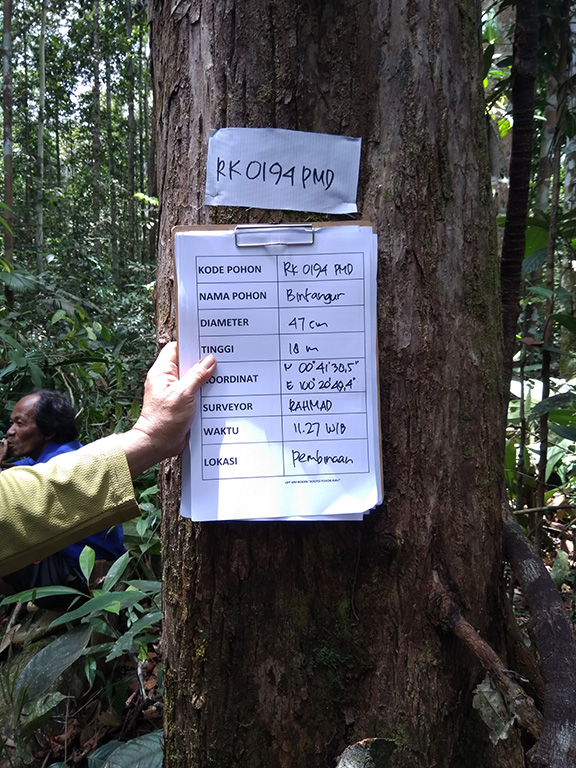 RK 0194 PMD
KODE POHON RK 0194 PMD
NAMA POHON Bintangur
DIAMETER 47 cm
TINGGI 18 m
KOORDINAT N 00°41'38,5"
E 100°20'49,4"
SURVEYOR RAHMAD
WAKTU 11.27 WIB
LOKASI Pembinaan